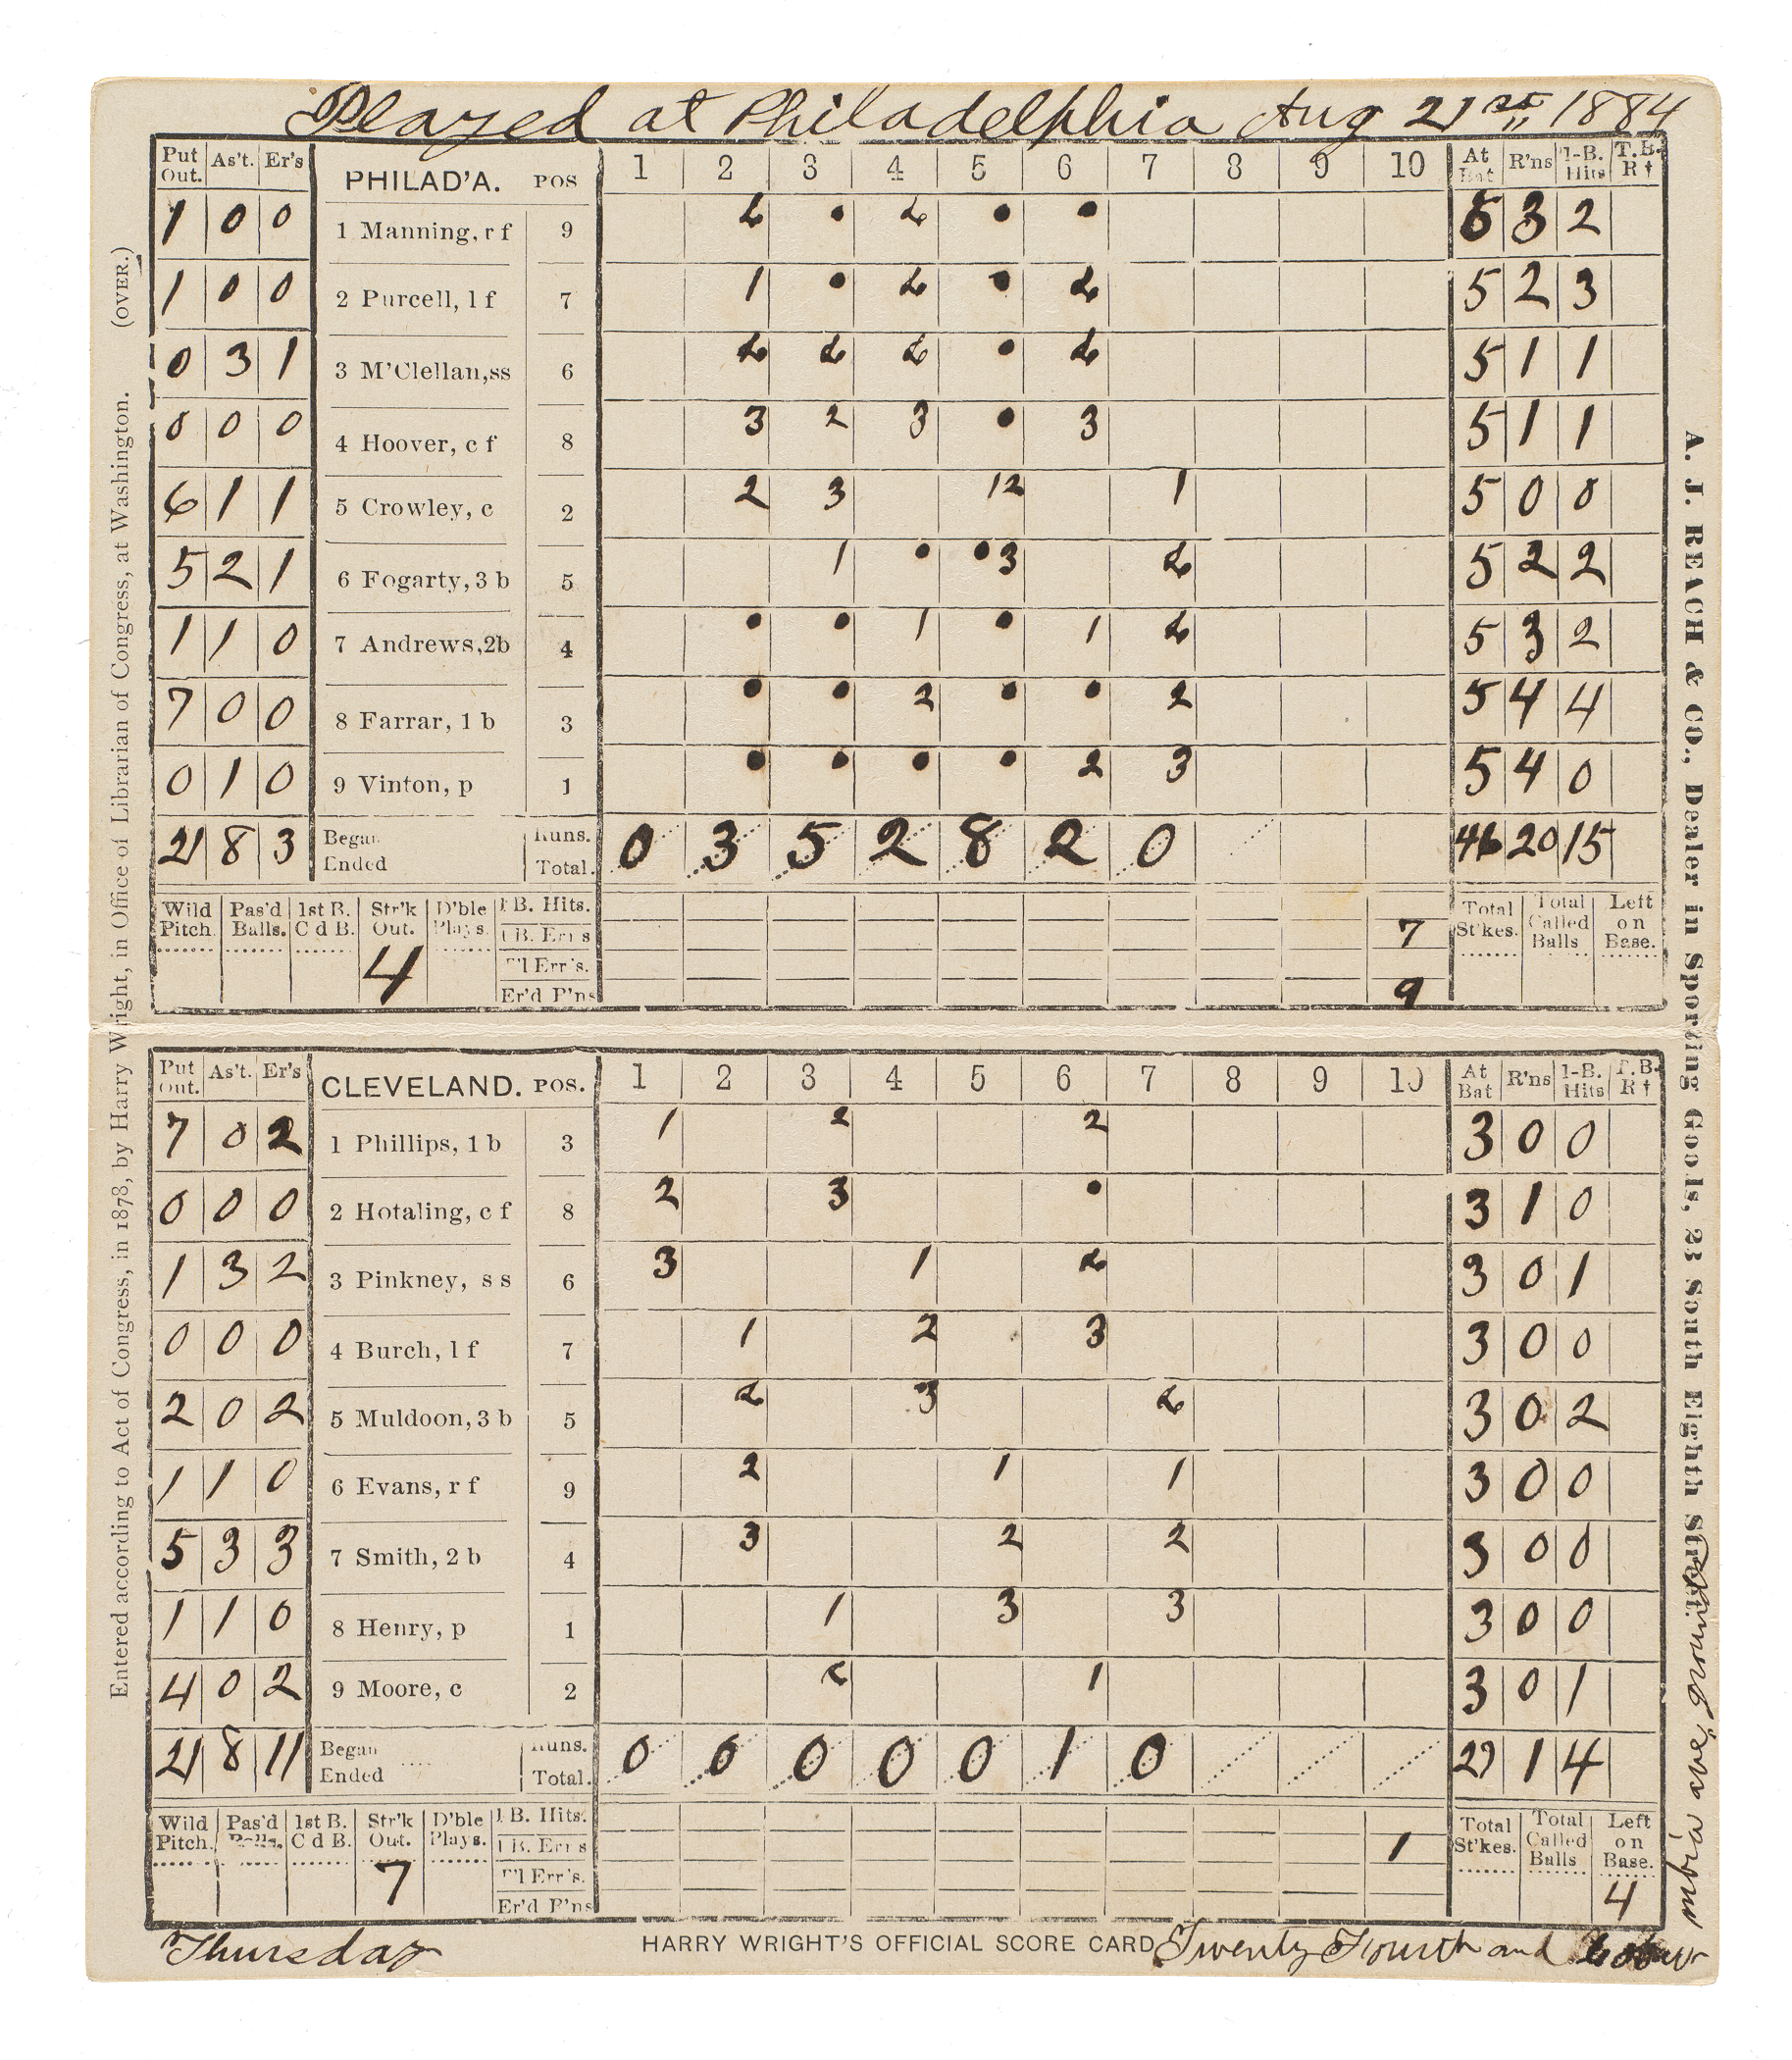 Played at Philadelphia Aug 21st, 1884
Put Out. As't. Er's PHILAD'A. POS 1 2 3 4 5 6 7 8 9 10 At Bat R'ns 1-B. Hits T.B. R †
1 0 0 1 Manning, r f 9 • • • 3 2
1 0 0 2 Purcell, l f 7 1 • • 5 2 3
0 3 1 3 M'Clellan, ss 6 • 5 1 1
0 0 0 4 Hoover, c f 8 3 2 3 • 3 5 1 1
6 1 1 5 Crowley, c 2 2 3 12 1 5 0 0
5 2 1 6 Fogarty, 3 b 5 1 • • 3 5 2 2
1 1 0 7 Andrews, 2b 4 • • 1 • 1 5 3 2
7 0 0 8 Farrar, 1 b 3 • • 2 • • 2 5 4 4
0 1 0 9 Vinton, p 1 • • • • 2 3 5 4 0
21 8 3 Began Ended Runs. Total. 0 3 5 2 8 2 0 46 20 15
Wild Pitch. Pas'd Balls. 1st B. C d B. Str'k Out. D'ble Plays. 1 B. Hits. Total St'kes. Total Called Balls Left on Base.
1 B. Err s 7
4 T'l Err's.
Er'd R'ns 9
Put Out. As't. Er's CLEVELAND. POS. 1 2 3 4 5 6 7 8 9 10 At Bat R'ns 1-B. Hits T.B. R †
7 0 2 1 Phillips, 1 b 3 1 2 2 3 0 0
0 0 0 2 Hotaling, c f 8 2 3 • 3 1 0
1 3 2 3 Pinkney, s s 6 3 1 3 0 1
0 0 0 4 Burch, l f 7 1 2 3 3 0 0
2 0 2 5 Muldoon, 3 b 5 3 3 0 2
1 1 0 6 Evans, r f 9 2 1 1 3 0 0
5 3 3 7 Smith, 2 b 4 3 2 2 3 0 0
1 1 0 8 Henry, p 1 1 3 3 3 0 0
4 0 2 9 Moore, c 2 1 3 0 1
21 8 11 Began Ended Runs. Total. 0 0 0 0 0 1 0 27 1 4
Wild Pitch. Pas'd Balls. 1st B. C d B. Str'k Out. D'ble Plays. 1 B. Hits. Total St'kes. Total Called Balls Left on Base.
1 B. Err s 1
7 T'l Err's. 4
Er'd R'ns
Thursday HARRY WRIGHT'S OFFICIAL SCORE CARD Twenty Fourth and
mbia ave, grounds
Entered according to Act of Congress, in 1878, by Harry Wright, in Office of Librarian of Congress, at Washington. (OVER.)
A. J. REACH & CO., Dealer in Sporting Goods, 23 South Eighth Street.